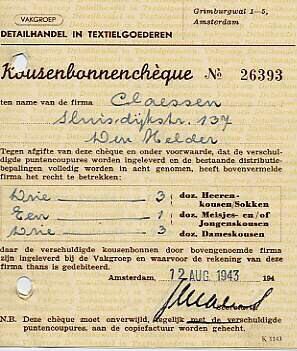 VAKGROEP
DETAILHANDEL IN TEXTIELGOEDEREN
Grimburgwal 1—5,
Amsterdam
Kousenbonnenchèque № 26393
ten name van de firma Claessen
Sluisdijkstr. 137
Den Helder
Tegen afgifte van deze chèque en onder voorwaarde, dat de verschul-
digde puntencoupures worden ingeleverd en de bestaande distributie-
bepalingen volledig worden in acht genomen, heeft bovenver-
melde firma het recht te betrekken:
Drie — 3 doz. Heeren-
kousen/Sokken
Een — 1 doz. Meisjes- en/of
Jongenskousen
Drie — 3 doz. Dameskousen
daar de verschuldigde kousenbonnen door bovengenoemde firma
zijn ingeleverd bij de Vakgroep en waarvoor de rekening van deze
firma thans is gedebiteerd.
Amsterdam, 12 AUG. 1943 194
N.B. Deze chèque moet onverwijld, tegelijk met de verschuldigde
puntencoupures, aan de copiefactuur worden gehecht.
K 1143